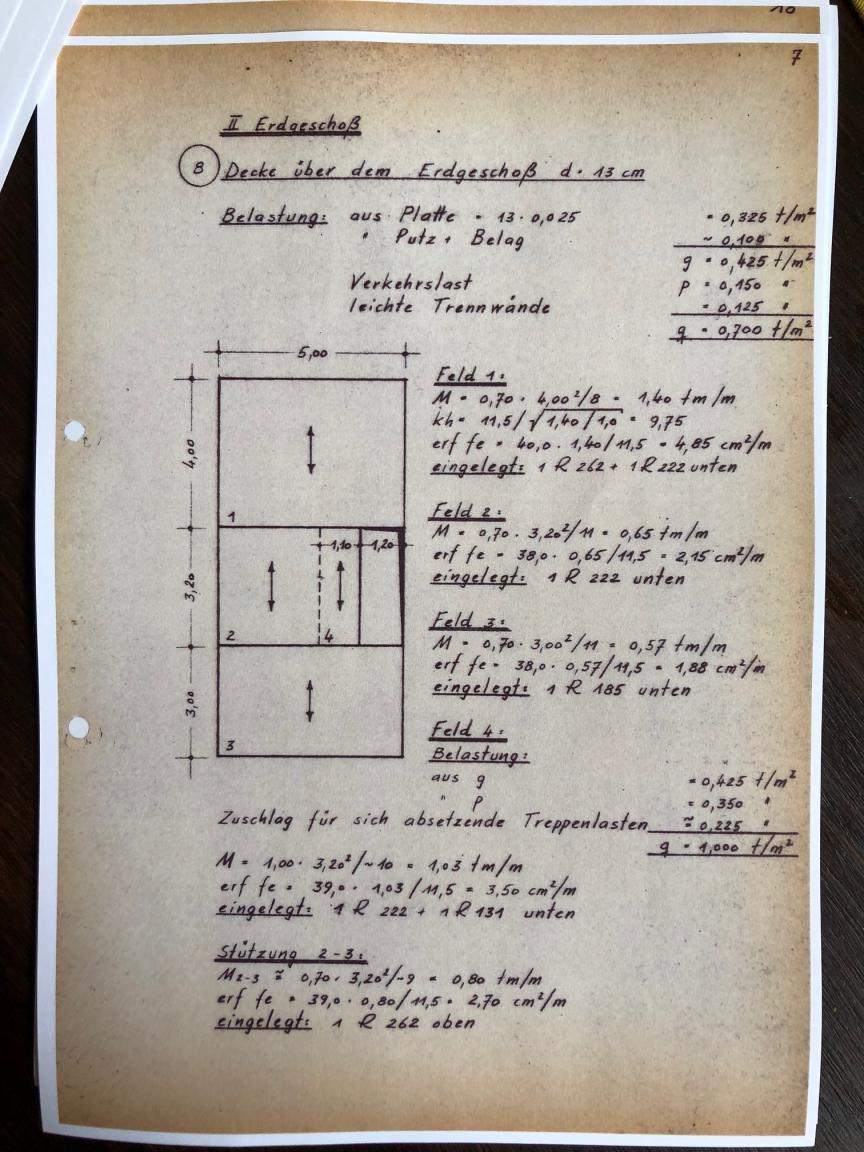 10
7
II Erdgeschoß
8 Decke über dem Erdgeschoß d = 13 cm
Belastung: aus Platte = 13 · 0,025 = 0,325 t/m²
" Putz + Belag ~ 0,100 "
g = 0,425 t/m²
Verkehrslast p = 0,150 "
leichte Trennwände = 0,125 "
q = 0,700 t/m²
5,00
4,00
1
1,10 1,20
3,20
2 4
3,00
3
Feld 1:
M = 0,70 · 4,00²/8 = 1,40 tm/m
kh = 11,5/√1,40/1,0 = 9,75
erf fe = 40,0 · 1,40/11,5 = 4,85 cm²/m
eingelegt: 1 R 262 + 1 R 222 unten
Feld 2:
M = 0,70 · 3,20²/11 = 0,65 tm/m
erf fe = 38,0 · 0,65/11,5 = 2,15 cm²/m
eingelegt: 1 R 222 unten
Feld 3:
M = 0,70 · 3,00²/11 = 0,57 tm/m
erf fe = 38,0 · 0,57/11,5 = 1,88 cm²/m
eingelegt: 1 R 185 unten
Feld 4:
Belastung:
aus g = 0,425 t/m²
" p = 0,350 "
Zuschlag für sich absetzende Treppenlasten ≈ 0,225 "
q = 1,000 t/m²
M = 1,00 · 3,20²/~10 = 1,03 tm/m
erf fe = 39,0 · 1,03/11,5 = 3,50 cm²/m
eingelegt: 1 R 222 + 1 R 131 unten
Stützung 2-3:
M2-3 ≈ 0,70 · 3,20²/-9 = 0,80 tm/m
erf fe = 39,0 · 0,80/11,5 = 2,70 cm²/m
eingelegt: 1 R 262 oben